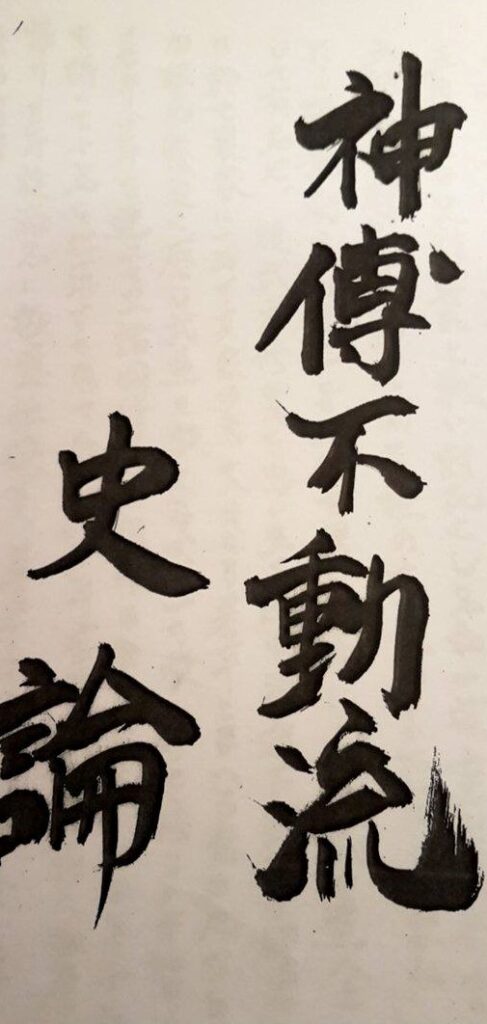 神傳不動流
史論